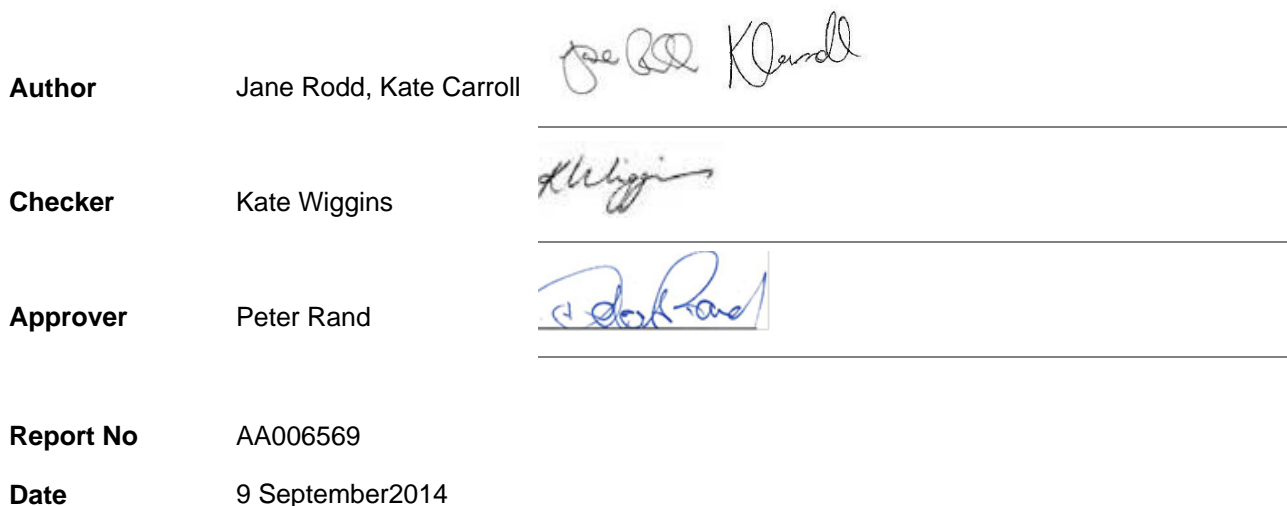 Author Jane Rodd, Kate Carroll
Checker Kate Wiggins KWiggins
Approver Peter Rand Peter Rand
Report No AA006569
Date 9 September2014